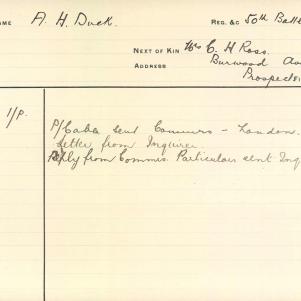 NAME A. H. Duck. REG. &C 50th Batt
NEXT OF KIN Mrs C. H Ross.
ADDRESS Burwood
Prospect
1/P.
P/Cable sent Commrs - London.
Letter from Inquirer
Reply from Commrs. Particulars sent Inq